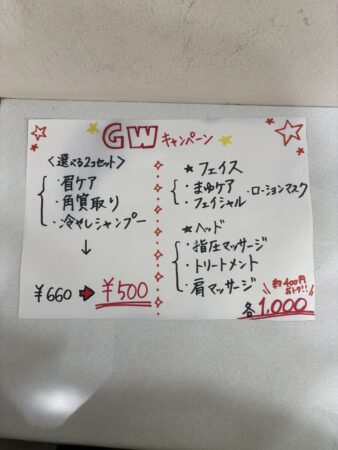 GWキャンペーン
<選べる2コセット>
・眉ケア
・角質取り
・冷やしシャンプー
↓
¥660 ➡ ¥500
★フェイス
・まゆケア ・ローションマスク
・フェイシャル
★ヘッド
・指圧マッサージ
・トリートメント
・肩マッサージ
約400円
おトク!!
各1,000